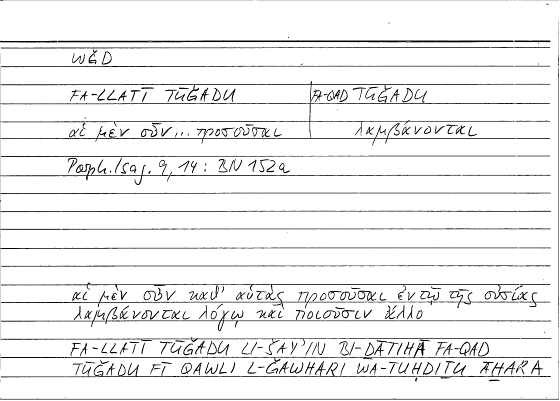 WǦD
FA-LLATĪ TŪǦADU | FA-QAD TŪǦADU
αἱ μὲν οὖν... προσοῦσαι λαμβάνονται
Porph. Isag. 9, 14 : BN 152a
αἱ μὲν οὖν καθ' αὑτὰς προσοῦσαι ἐν τῷ τῆς οὐσίας
λαμβάνονται λόγῳ καὶ ποιοῦσιν ἄλλο
FA-LLATĪ TŪǦADU LI-ŠAY'IN BI-ḎĀTIHĀ FA-QAD
TŪǦADU FĪ QAWLI L-ǦAWHARI WA-TUḤDIṮU ĀḪARA